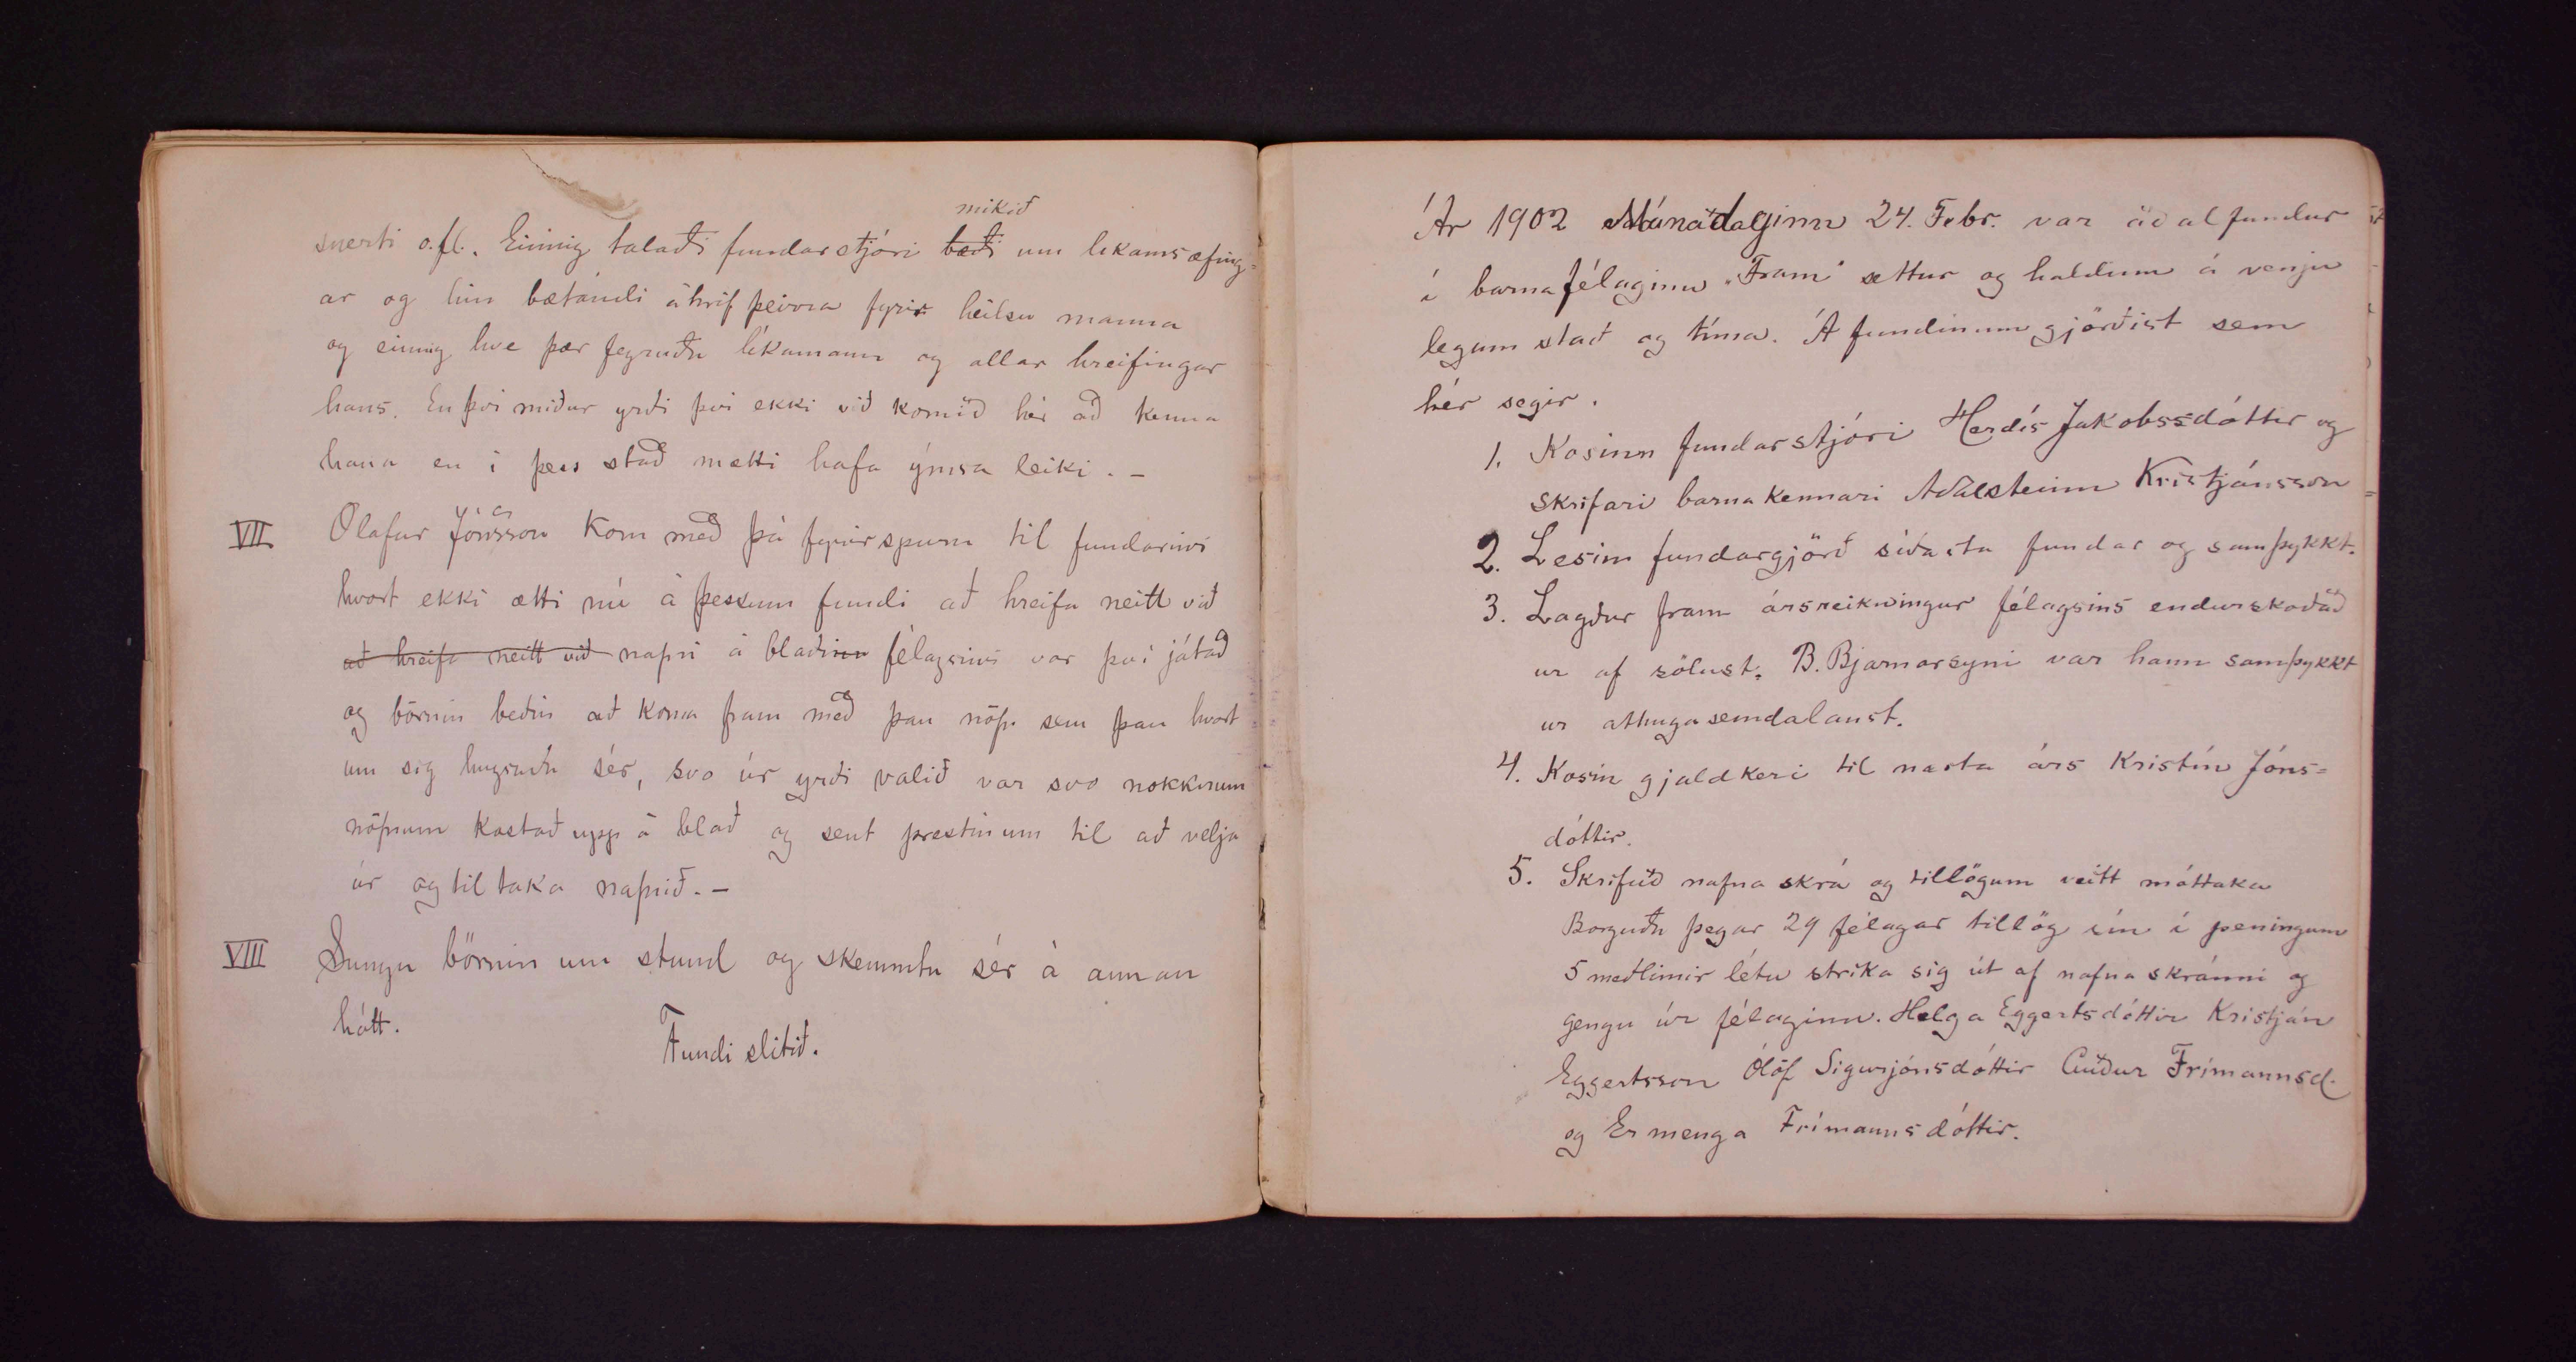 snerti o.fl. Einnig talaði fundarstjóri bæði mikið um líkamsæfing=
ar og hin bætandi áhrif þeirra fyrir heilsu manna
og einnig hve þær fegruðu líkamann og allar hreifingar
hans. En því miður yrði því ekki við komið hér að kenna
hana en í þess stað mætti hafa ýmsa leiki. -
VII Ólafur Jónsson kom með þá fyrirspurn til fundarins
hvort ekki ætti nú á þessum fundi að hreifa neitt við
að hreifa neitt við nafni á blaðinu félagsins var því játað
og börnin beðin að koma fram með þau nöfn sem þau hvort
um sig hugsuðu sér, svo úr yrði valið var svo nokkrum
nöfnum kastað upp á blað og sent prestinum til að velja
úr og tiltaka nafnið. -
VIII Sungu börnin um stund og skemmtu sér á annan
hátt.
Fundi slitið.
Ár 1902 Mánudaginn 24. Febr. var aðalfundur
í barnafélaginu "Fram" settur og haldinn á venju
legum stað og tíma. Á fundinum gjörðist sem
hér segir.
1. Kosinn fundarstjóri Herdís Jakobssdóttir og
skrifari barnakennari Aðalsteinn Kristjánsson
2. Lesin fundargjörð síðasta fundar og samþykkt.
3. Lagður fram ársreikningur félagsins endurskoðað
ur af sölust. B. Bjarnarsyni var hann samþykkt
ur athugasemdalaust.
4. Kosin gjaldkeri til næsta árs Kristín Jóns=
dóttir.
5. Skrifuð nafna skrá og tillögum veitt móttaka
Borguðu þegar 29 félagar tillög sín í peningum
5 meðlimir létu strika sig út af nafna skránni og
gengu úr félaginu. Helga Eggertsdóttir Kristján
Eggertsson Ólöf Sigurjónsdóttir Auður Frímannsd.
og Ermenga Frímannsdóttir.